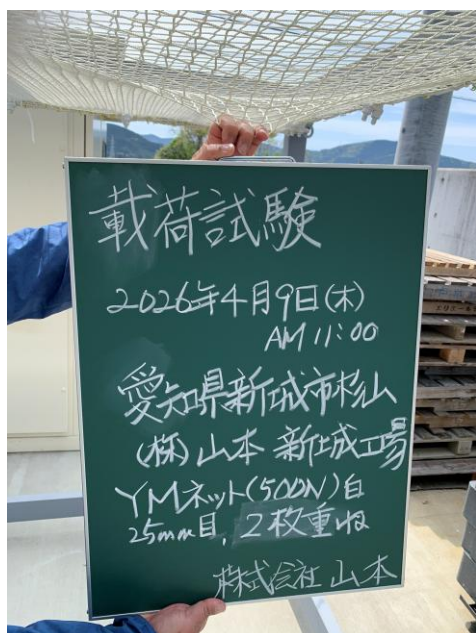 載荷試験
2026年4月9日(木)
AM 11:00
愛知県新城市杉山
(株)山本 新城工場
YMネット(500N)白
25mm目, 2枚重ね
株式会社 山本